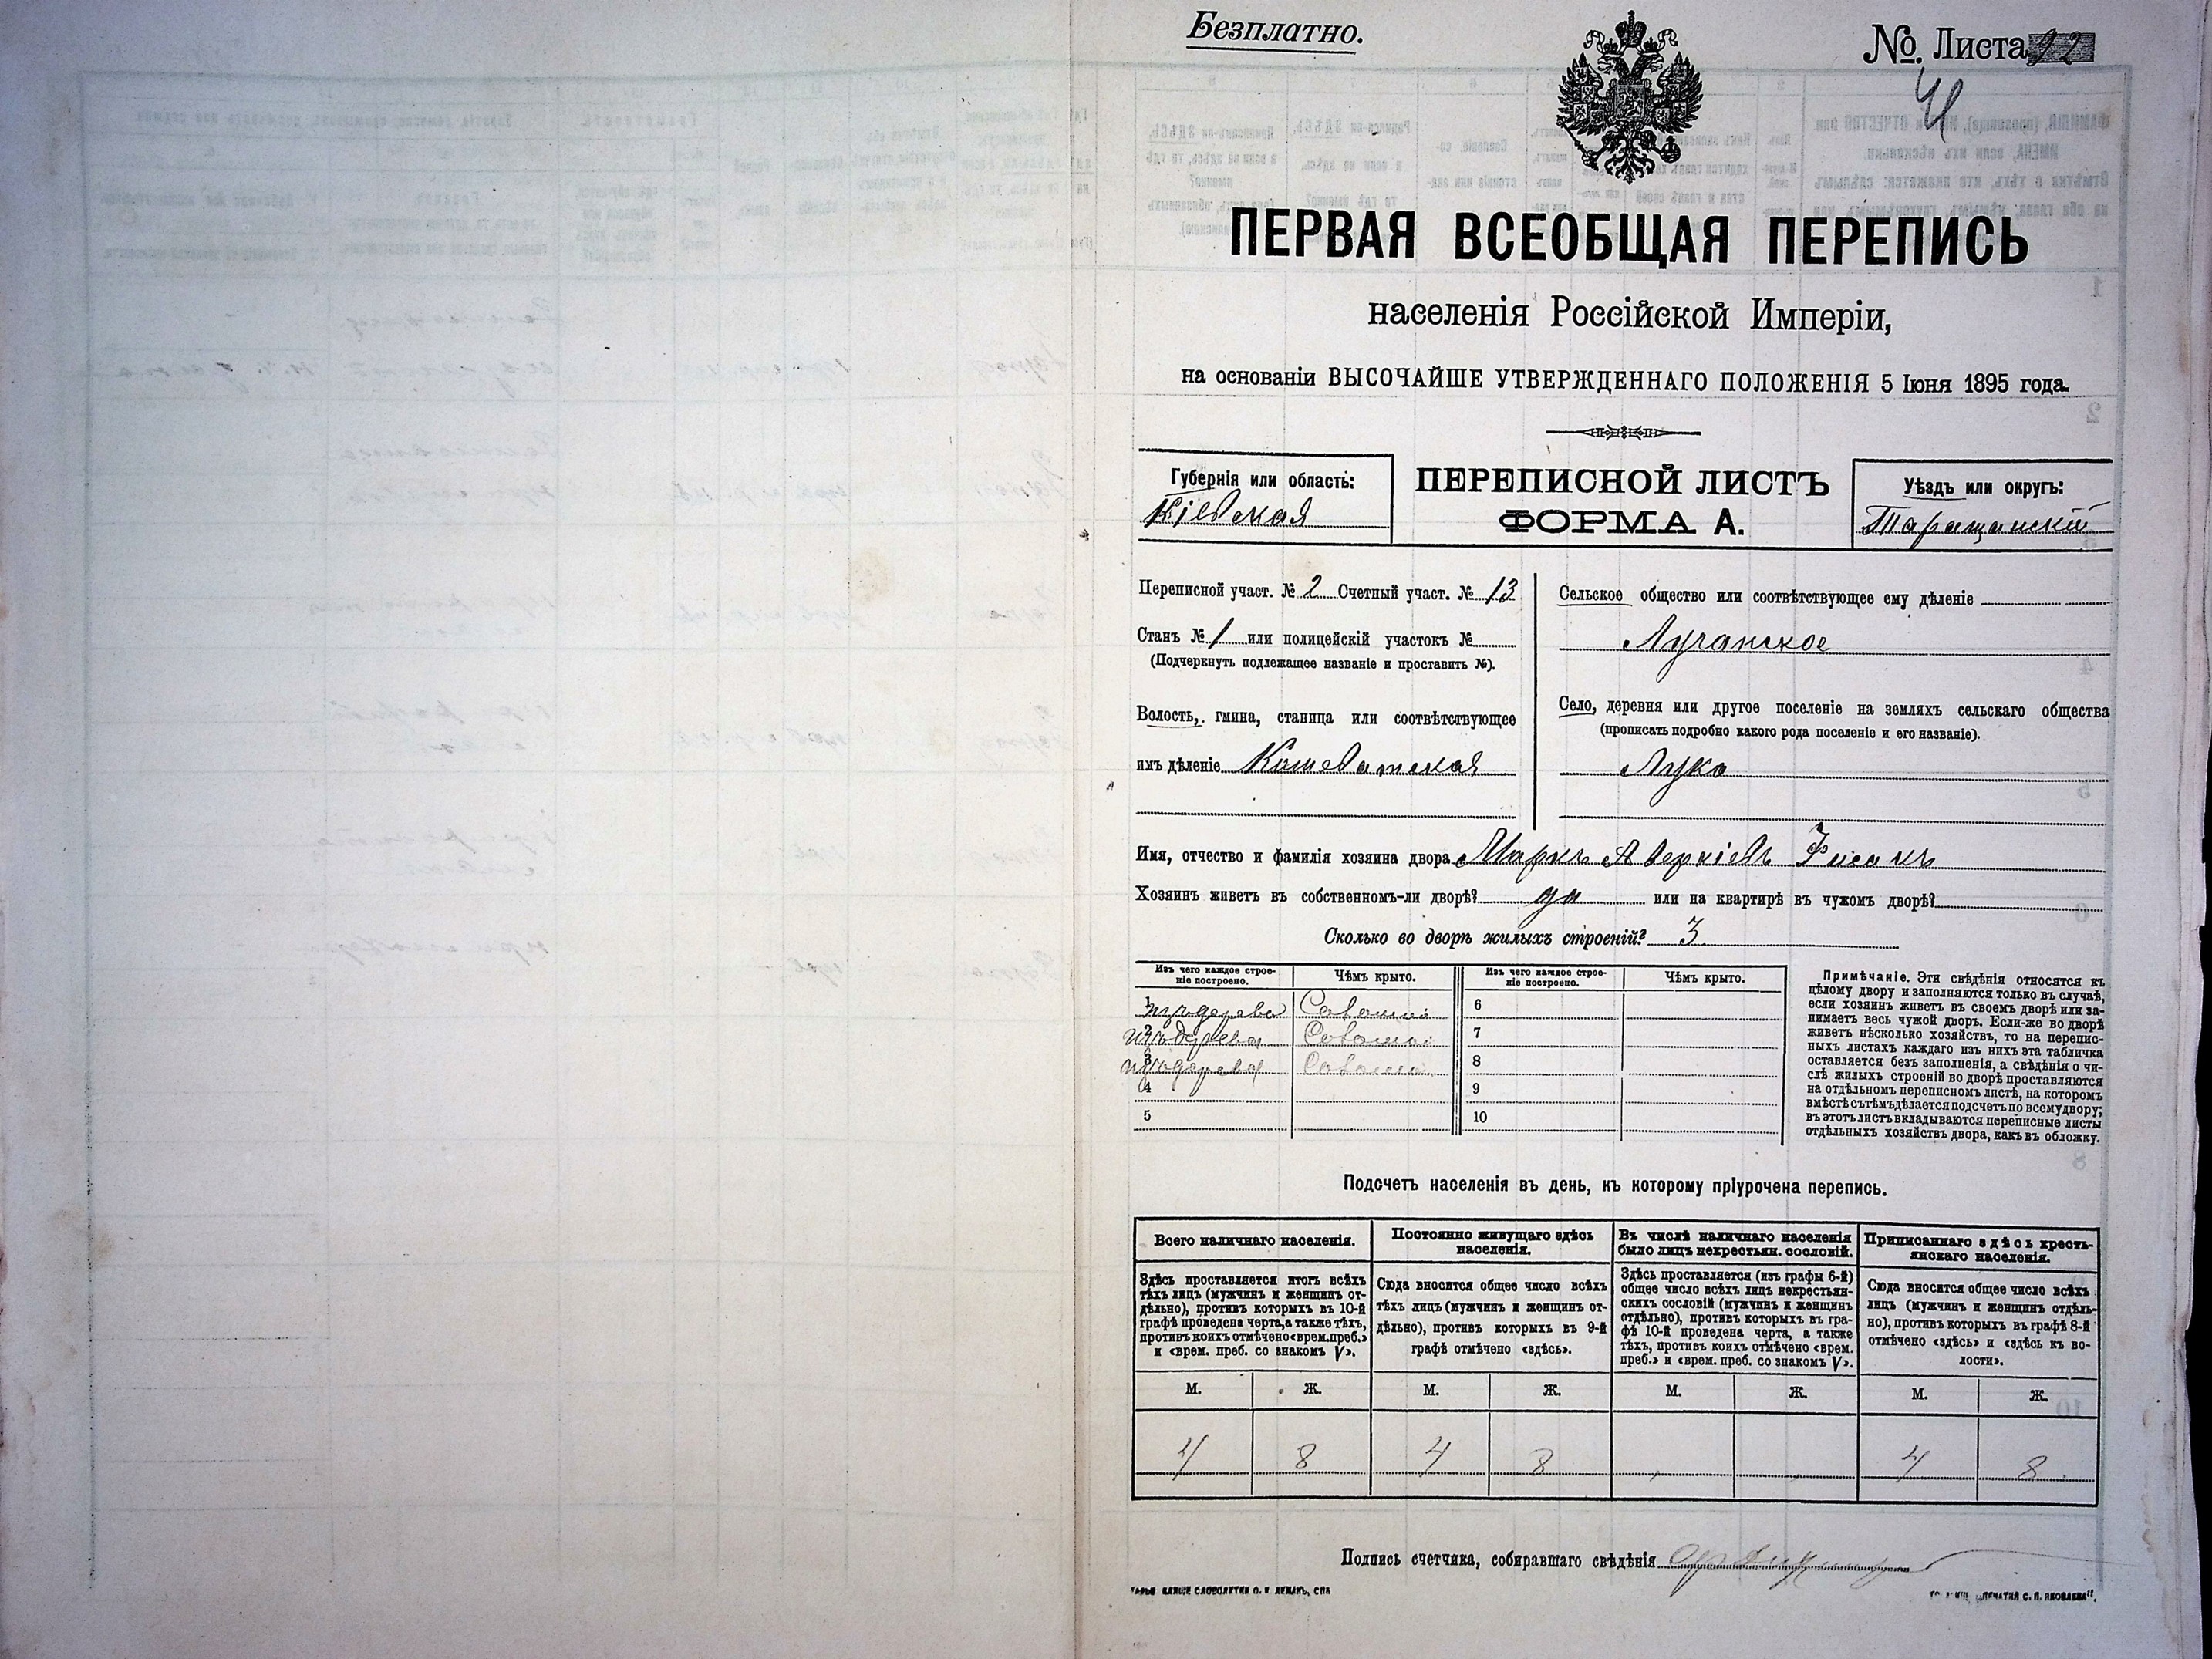 Безплатно.
№. Листа 92
41
ПЕРВАЯ ВСЕОБЩАЯ ПЕРЕПИСЬ
населенія Россійской Имперіи,
на основаніи ВЫСОЧАЙШЕ УТВЕРЖДЕННАГО ПОЛОЖЕНІЯ 5 Іюня 1895 года.
Губернія или область:
Кіевская
ПЕРЕПИСНОЙ ЛИСТЪ
ФОРМА А.
Уѣздъ или округъ:
Таращанскій
Переписной участ. № 2 Счетный участ. № 13
Станъ № 1 или полицейскій участокъ №
(Подчеркнуть подлежащее названіе и проставить №).
Волость, гмина, станица или соотвѣтствующее
имъ дѣленіе Кошеватская
Сельское общество или соотвѣтствующее ему дѣленіе
Лучанское
Село, деревня или другое поселеніе на земляхъ сельскаго общества
(прописать подробно какого рода поселеніе и его названіе).
Лука
Имя, отчество и фамилія хозяина двора Маркъ Аверкіевъ Фисакъ
Хозяинъ живетъ въ собственномъ-ли дворѣ? да или на квартирѣ въ чужомъ дворѣ?
Сколько во дворѣ жилыхъ строеній? 3
Изъ чего каждое строе-
ніе построено.
Чѣмъ крыто.
Изъ чего каждое строе-
ніе построено.
Чѣмъ крыто.
1 изъ дерева Соломой 6
2 изъ дерева Соломой 7
3 изъ дерева Соломой 8
4 9
5 10
Примѣчаніе. Эти свѣдѣнія относятся къ
цѣлому двору и заполняются только въ случаѣ,
если хозяинъ живетъ въ своемъ дворѣ или за-
нимаетъ весь чужой дворъ. Если-же во дворѣ
живетъ нѣсколько хозяйствъ, то на перепис-
ныхъ листахъ каждаго изъ нихъ эта табличка
оставляется безъ заполненія, а свѣдѣнія о чи-
слѣ жилыхъ строеній во дворѣ проставляются
на отдѣльномъ переписномъ листѣ, на которомъ
вмѣстѣ съ тѣмъ дѣлается подсчетъ по всему двору;
въ этотъ листъ вкладываются переписные листы
отдѣльныхъ хозяйствъ двора, какъ въ обложку.
Подсчетъ населенія въ день, къ которому пріурочена перепись.
Всего наличнаго населенія.
Здѣсь проставляется итогъ всѣхъ
тѣхъ лицъ (мужчинъ и женщинъ от-
дѣльно), противъ которыхъ въ 10-й
графѣ проведена черта, а также тѣхъ,
противъ коихъ отмѣчено «врем. преб.»
и «врем. преб. со знакомъ V».
Постоянно живущаго здѣсь
населенія.
Сюда вносится общее число всѣхъ
тѣхъ лицъ (мужчинъ и женщинъ от-
дѣльно), противъ которыхъ въ 9-й
графѣ отмѣчено «здѣсь».
Въ числѣ наличнаго населенія
было лицъ некрестьян. сословій.
Здѣсь проставляется (изъ графы 6-й)
общее число всѣхъ лицъ некрестьян-
скихъ сословій (мужчинъ и женщинъ
отдѣльно), противъ которыхъ въ гра-
фѣ 10-й проведена черта, а также
тѣхъ, противъ коихъ отмѣчено «врем.
преб.» и «врем. преб. со знакомъ V».
Приписаннаго здѣсь кресть-
янскаго населенія.
Сюда вносится общее число всѣхъ
лицъ (мужчинъ и женщинъ отдѣль-
но), противъ которыхъ въ графѣ 8-й
отмѣчено «здѣсь» и «здѣсь къ во-
лости».
М. Ж. М. Ж. М. Ж. М. Ж.
4 8 4 8 4 8
Подпись счетчика, собиравшаго свѣдѣнія
КЛИШЕ СЛОВОЛИТНИ О. И. ЛЕМАНЪ, СПБ
С. П. ЯКОВЛЕВА".